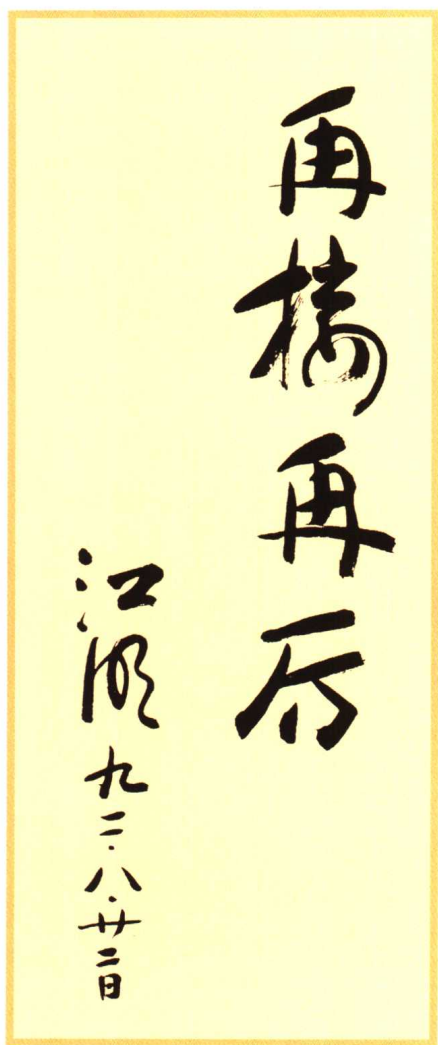 再接再厉
江明 九二·八·廿二日